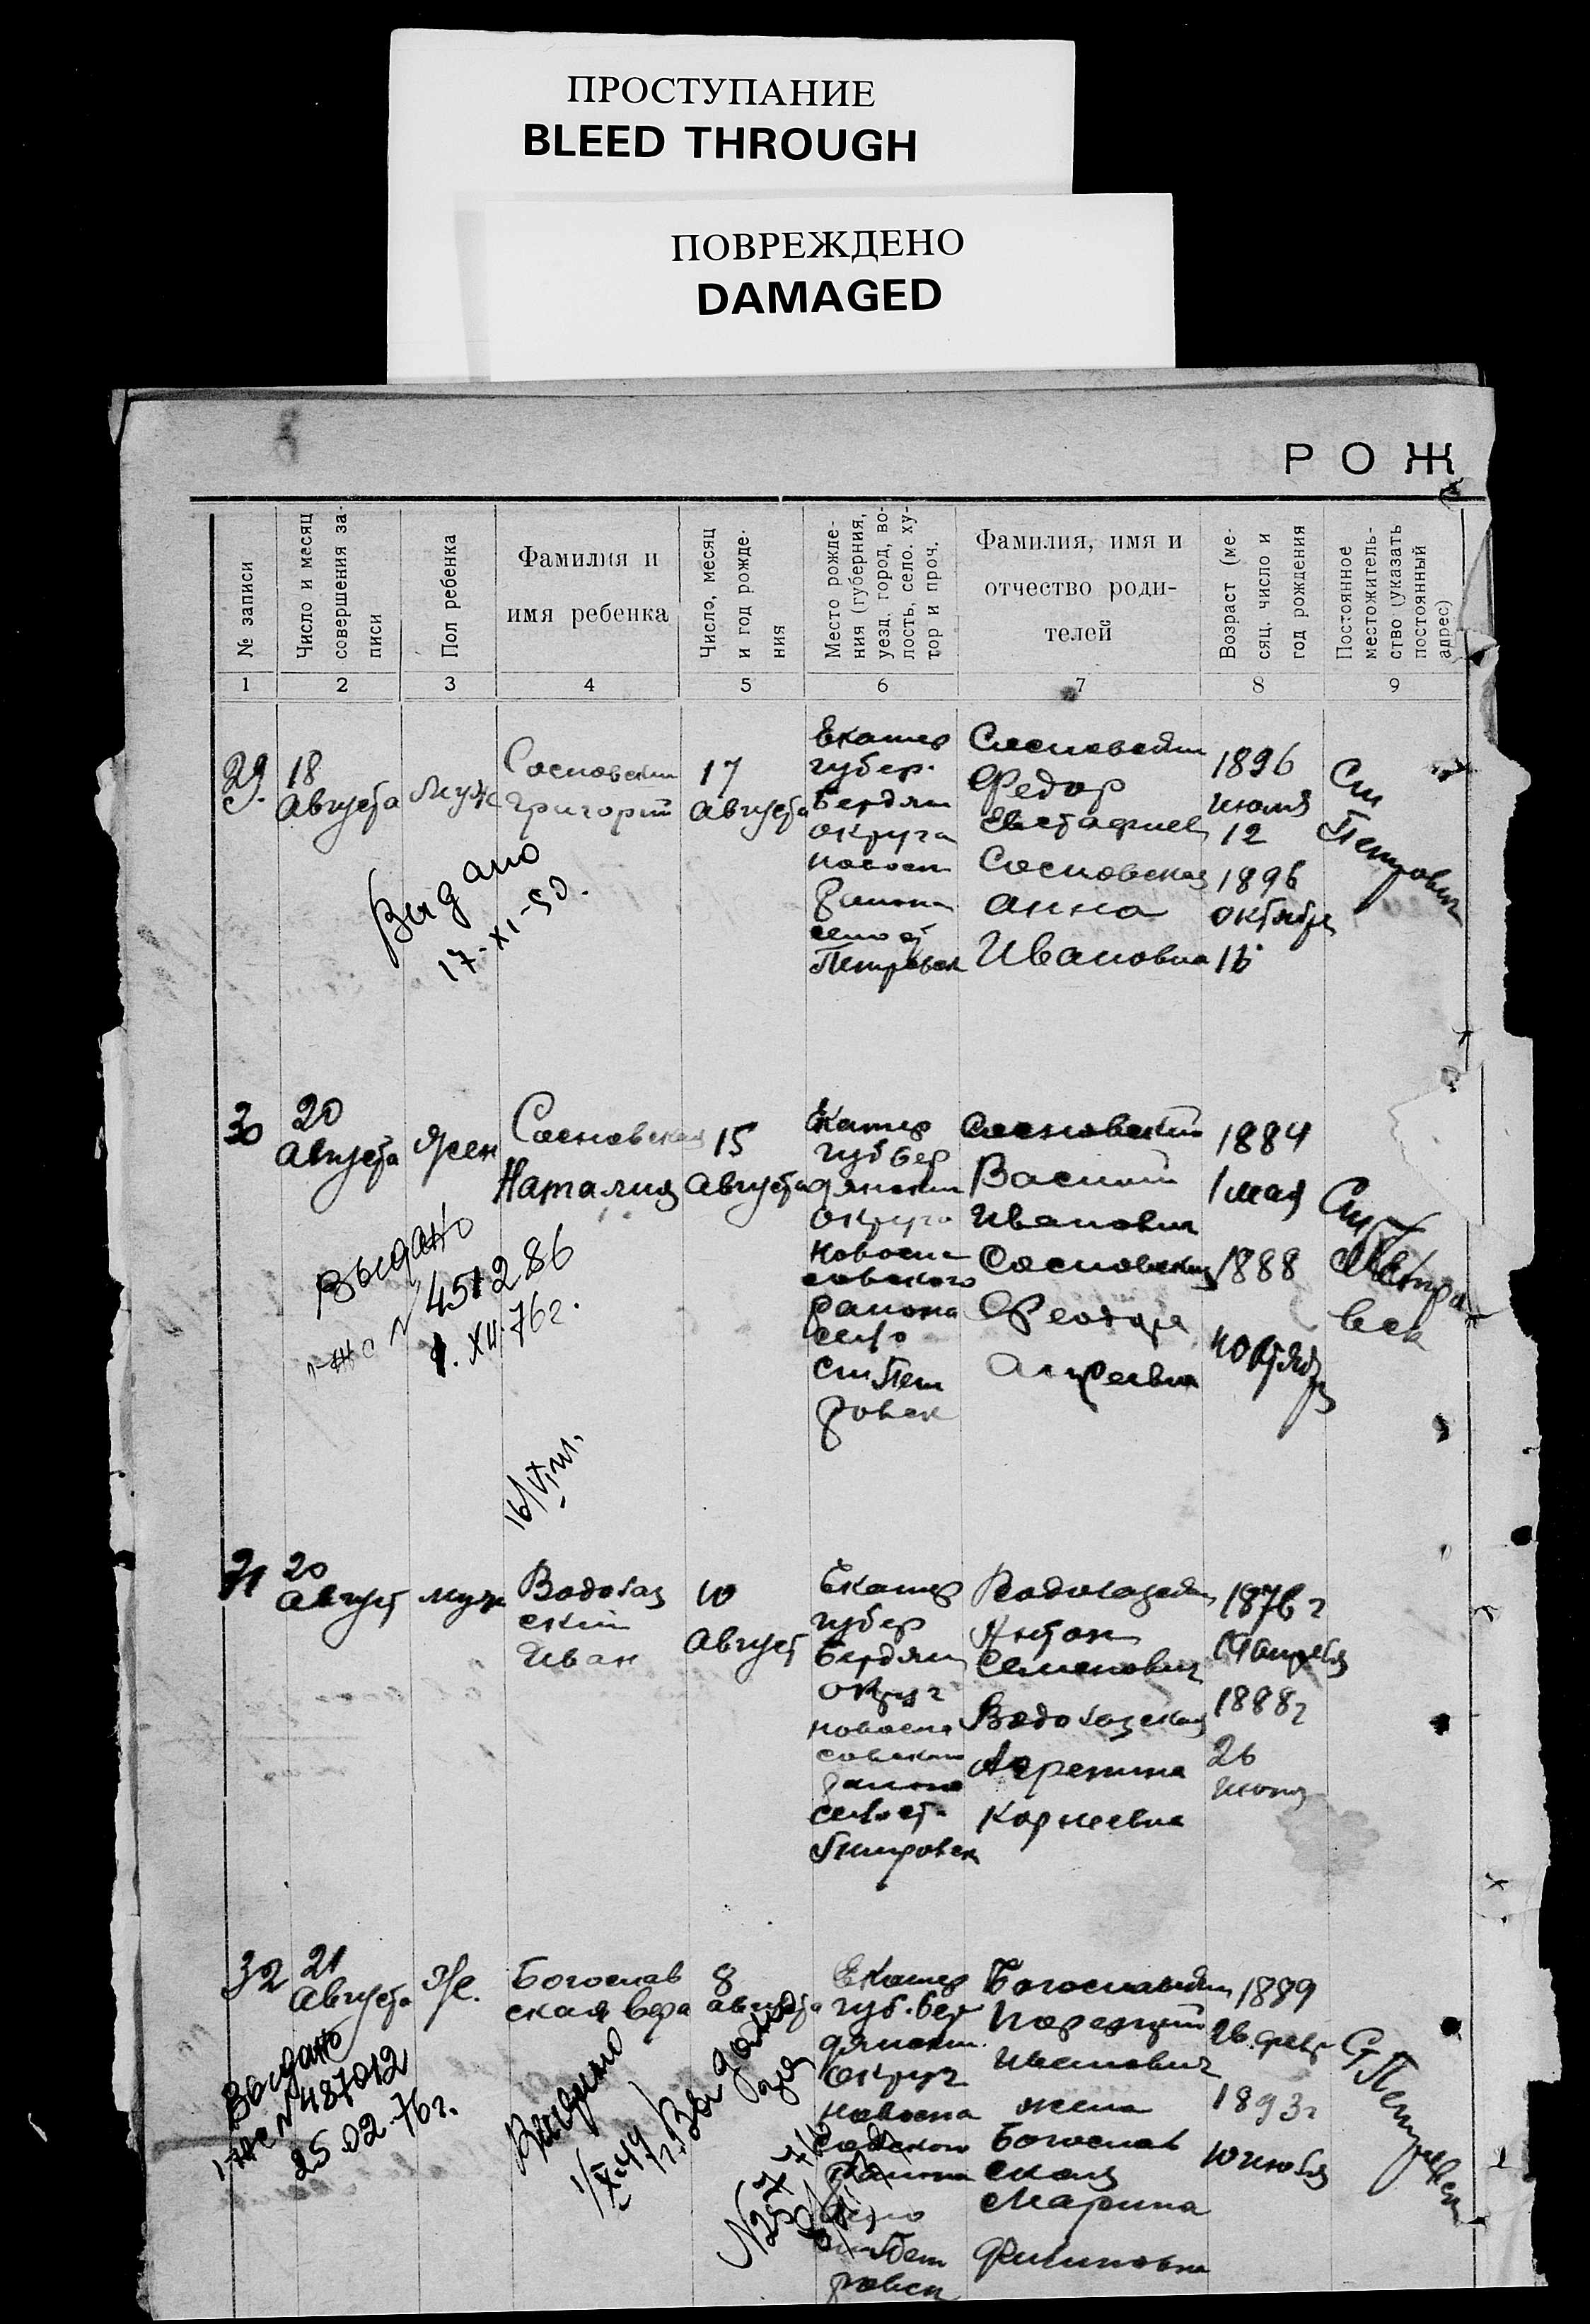 ПРОСТУПАНИЕ
BLEED THROUGH
ПОВРЕЖДЕНО
DAMAGED
РОЖ
№ записи
Число и месяц
совершения за-
писи
Пол ребенка
Фамилия и
имя ребенка
Число, месяц
и год рожде-
ния
Место рожде-
ния (губерния,
уезд, город, во-
лость, село, ху-
тор и проч.
Фамилия, имя и
отчество роди-
телей
Возраст (ме-
сяц, число и
год рождения
Постоянное
местожитель-
ство (указать
постоянный
адрес)
1 2 3 4 5 6 7 8 9
29.
18
Августа
муж
Сосновский
Григорий
17
Августа
Екатер
губер.
Бердян
округа
района
Петровск
Сосновский
Федор
Евстафиев
Сосновская
Анна
Ивановна
1896
июля
12
1896
октября
16
Ст
Петровск
Выдано
17-XI-50.
30
20
Августа
Жен
Сосновская
Наталия
15
Августа
Екатер
губ Бер
дянский
округа
Новоспа
совского
района
село
ст Пет
ровск
Сосновский
Василий
Иванович
Сосновская
Феодора
1884
1 мая
1888
Ст
Петро
вск
Выдано
№ 451286
1.XII.76г.
31
20
Август
муж
Водолаз
ский
Иван
10
Август
Екатер
губер
Бердян
округ
новоспа
совский
района
село ст.
Петровск
Водолазский
Антон
Семенович
Водолазская
Агрепина
Корнеевна
1876 г
1888 г
26
июня
32
21
Августа
Ж.
Богослав
ская Вера
8
августа
Екатер
губ. Бер
дянский
округ
новоспа
совского
района
село
ст Пет
ровск
Богославский
Иванович
жена
Богослав
ская
Марина
Филиповна
1889
26 февр
1893 г
10 июля
Ст Петровск
Выдано
№ 487012
25.02.76г.
Выдано
Выдано